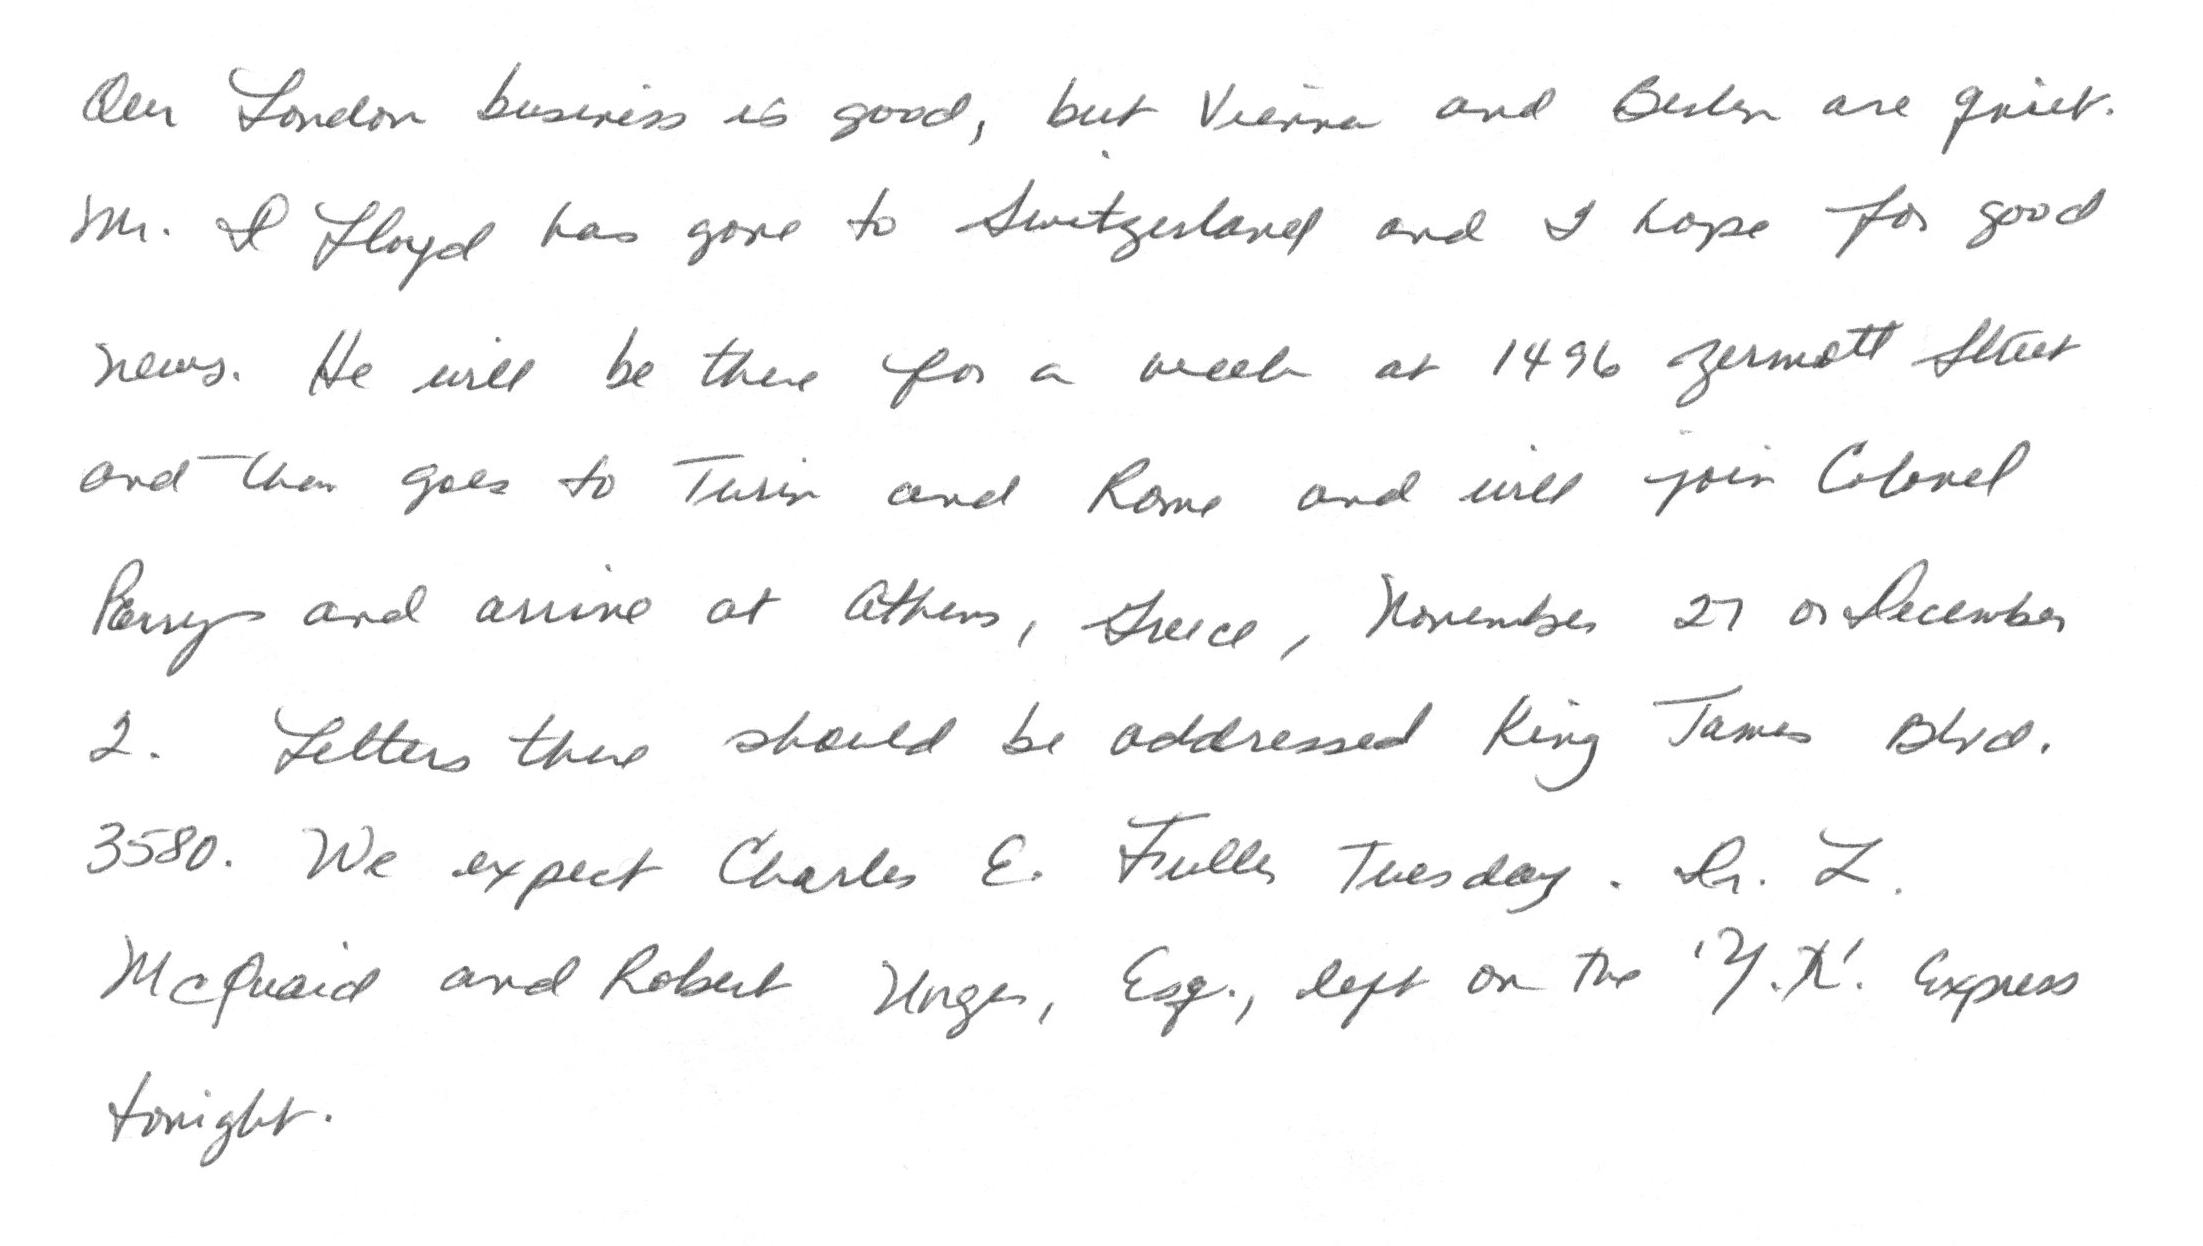 Our London business is good, but Vienna and Berlin are quiet.
Mr. D Lloyd has gone to Switzerland and I hope for good
news. He will be there for a week at 1496 Zermott Street
and then goes to Turin and Rome and will join Colonel
Parry and arrive at Athens, Greece, November 27 or December
2. Letters there should be addressed King James Blvd.
3580. We expect Charles E. Fuller Tuesday. Dr. L.
McQuaid and Robert Unger, Esq., left on the 'Y.X.' Express
tonight.